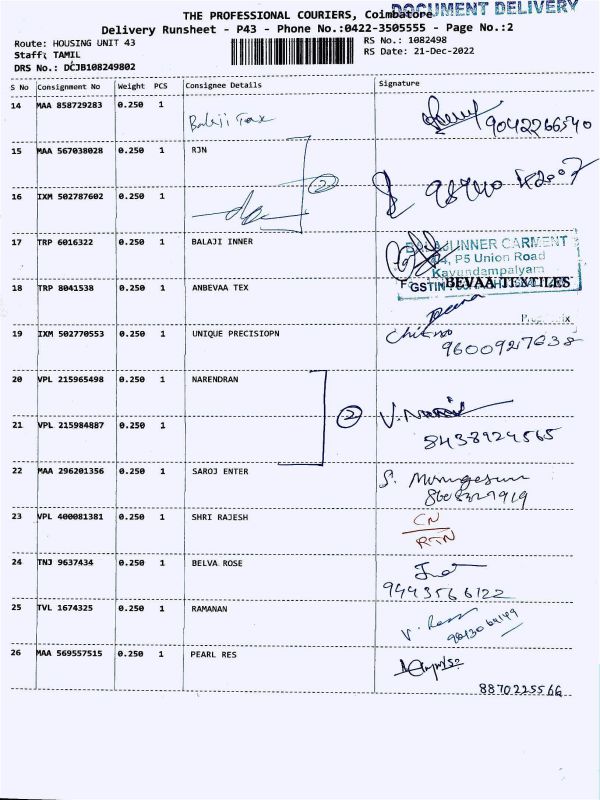 DOCUMENT DELIVERY
THE PROFESSIONAL COURIERS, Coimbatore
Delivery Runsheet - P43 - Phone No.:0422-3505555 - Page No.:2
Route: HOUSING UNIT 43 RS No.: 1082498
Staff: TAMIL RS Date: 21-Dec-2022
DRS No.: DCJB108249802
S No Consignment No Weight PCS Consignee Details Signature
14 MAA 858729283 0.250 1 Balaji Tax 9042266540
15 MAA 567038028 0.250 1 RJN
16 IXM 502787602 0.250 1 2
17 TRP 6016322 0.250 1 BALAJI INNER
INNER CARMENT
P5 Union Road
Kavundampalyam
GSTIN
18 TRP 8041538 0.250 1 ANBEVAA TEX BEVAA TEXTILES
19 IXM 502770553 0.250 1 UNIQUE PRECISIOPN
9600927638
20 VPL 215965498 0.250 1 NARENDRAN 2
21 VPL 215984887 0.250 1 8438924565
22 MAA 296201356 0.250 1 SAROJ ENTER S. Murugesan
8608327919
23 VPL 400081381 0.250 1 SHRI RAJESH CN
RTN
24 TNJ 9637434 0.250 1 BELVA ROSE
9443566122
25 TVL 1674325 0.250 1 RAMANAN
26 MAA 569557515 0.250 1 PEARL RES
8870225566